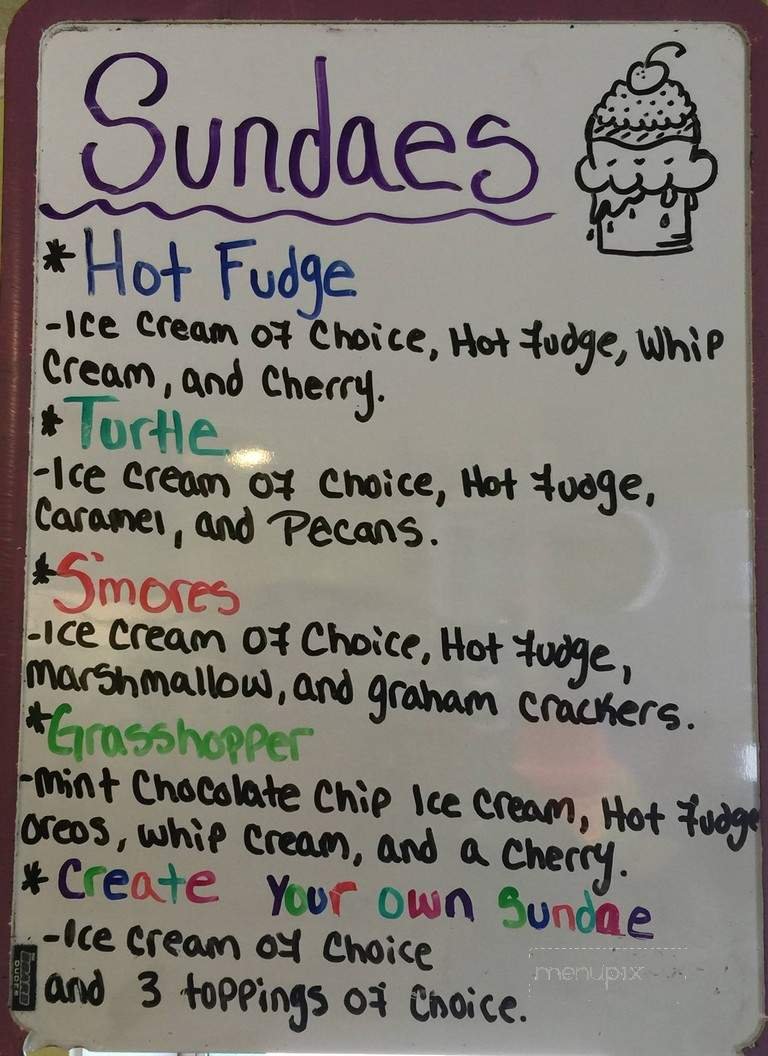 Sundaes
* Hot Fudge
-Ice cream of Choice, Hot fudge, Whip
Cream, and Cherry.
* Turtle
-Ice cream of Choice, Hot fudge,
Caramel, and Pecans.
* S'mores
-Ice cream of Choice, Hot fudge,
marshmallow, and graham crackers.
* Grasshopper
-mint Chocolate Chip Ice cream, Hot Fudge
Oreos, whip cream, and a Cherry.
* Create Your own Sundae
-Ice cream of Choice
and 3 toppings of Choice.
menupix